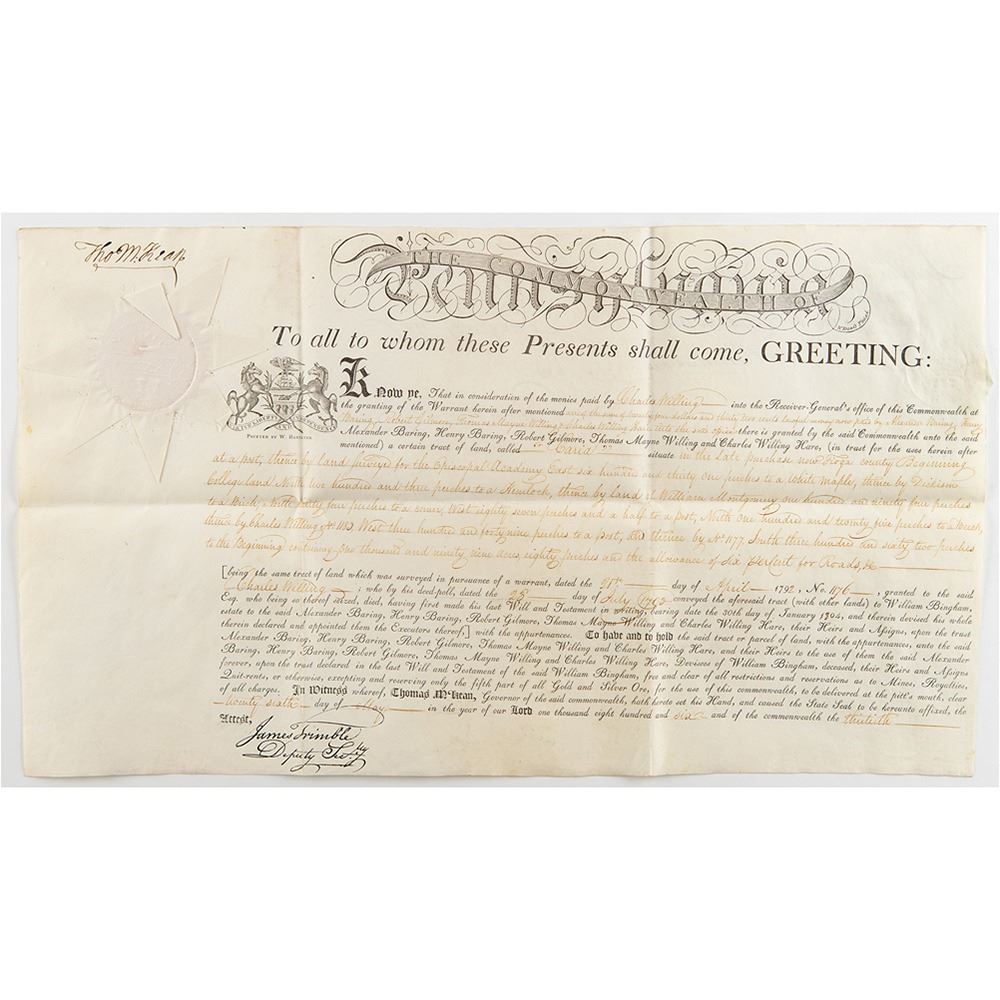 Tho M:Kean
THE COMMONWEALTH OF
Pennsylvania
To all to whom these Presents shall come, GREETING:
PRINTED BY W. HAMILTON
Know ye, That in consideration of the monies paid by Charles Willing into the Receiver-General's office of this Commonwealth at
the granting of the Warrant herein after mentioned and of the sum of twenty four dollars and thirty two cents now paid by Alexander Baring, Henry
Baring, Robert Gilmore, Thomas Mayne Willing & Charles Willing Hare into the said office there is granted by the said Commonwealth unto the said
Alexander Baring, Henry Baring, Robert Gilmore, Thomas Mayne Willing and Charles Willing Hare, (in trust for the uses herein after
mentioned) a certain tract of land, called "Caria" situate in the Late purchase now Tioga county Beginning
at a post, thence by land surveyed for the Episcopal Academy East six hundred and thirty one perches to a White Maple, thence by Dickison
College land North two hundred and three perches to a Hemlock, thence by land of William Montgomery one hundred and ninety four perches
to a Birch, North sixty four perches to a corner, West eighty seven perches and a half to a post, North one hundred and twenty five perches to a Beech,
thence by Charles Willing No. 1183, West three hundred and forty nine perches to a post, and thence by No. 1177. South three hundred and sixty two perches
to the Beginning containing one thousand and ninety nine acres eighty perches and the allowance of Six perCent for Roads, &c
[being the same tract of land which was surveyed in pursuance of a warrant, dated the 27th day of April 1792, No. 1176, granted to the said
Charles Willing; who by his deed-poll, dated the 28 day of July 1793 conveyed the aforesaid tract (with other lands) to William Bingham,
Esq. who being so thereof seized, died, having first made his last Will and Testament in writing, bearing date the 30th day of January 1804, and therein devised his whole
estate to the said Alexander Baring, Henry Baring, Robert Gilmore, Thomas Mayne Willing and Charles Willing Hare, their Heirs and Assigns, upon the trust
therein declared and appointed them the Executors thereof,] with the appurtenances. To have and to hold the said tract or parcel of land, with the appurtenances, unto the said
Alexander Baring, Henry Baring, Robert Gilmore, Thomas Mayne Willing and Charles Willing Hare, and their Heirs to the use of them the said Alexander
Baring, Henry Baring, Robert Gilmore, Thomas Mayne Willing and Charles Willing Hare, Devisees of William Bingham, deceased, their Heirs and Assigns
forever, upon the trust declared in the last Will and Testament of the said William Bingham, free and clear of all restrictions and reservations as to Mines, Royalties,
Quit-rents, or otherwise, excepting and reserving only the fifth part of all Gold and Silver Ore, for the use of this commonwealth, to be delivered at the pitt's mouth, clear
of all charges. In Witness whereof, Thomas M'Kean, Governor of the said commonwealth, hath hereto set his Hand, and caused the State Seal to be hereunto affixed, the
twenty sixth day of May in the year of our Lord one thousand eight hundred and six and of the commonwealth the thirtieth
Attest,
James Trimble
Deputy Secry